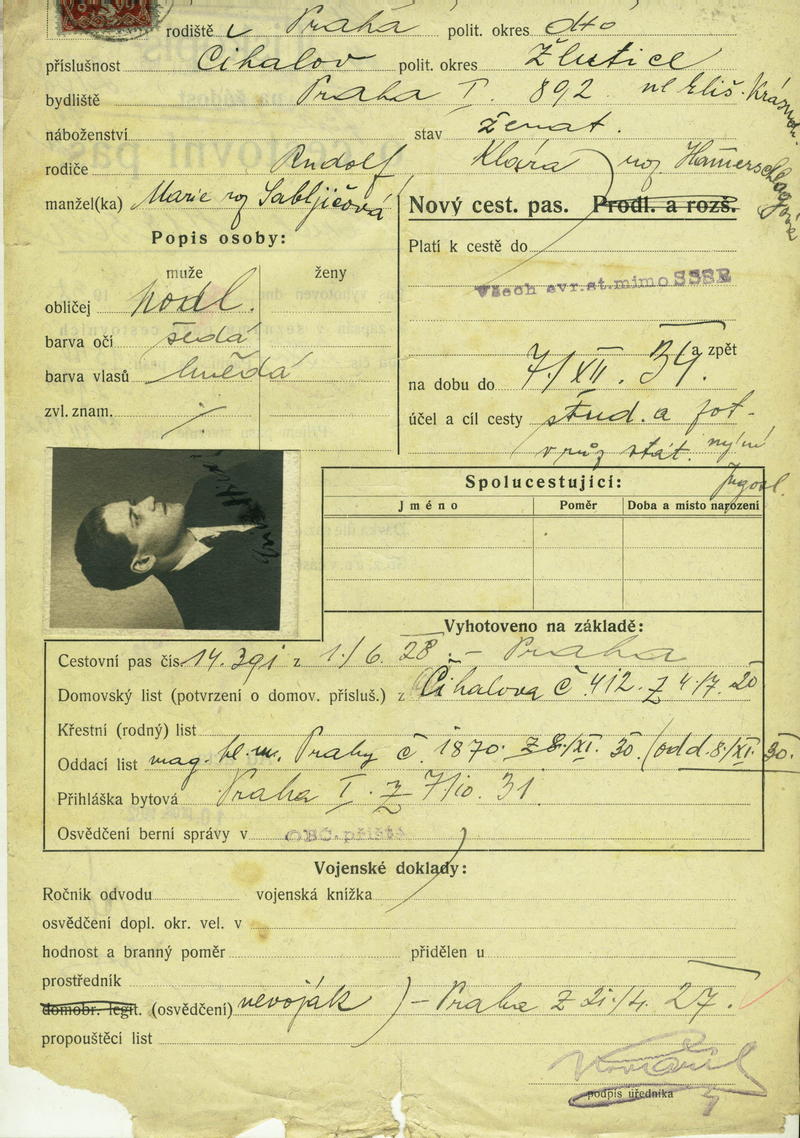 rodiště v Praha polit. okres dto
příslušnost Cihalov polit. okres Žlutice
bydliště Praha I. 892 ul Eliš. Krásnoh.
náboženství stav ženat.
rodiče Rudolf Klára roz. Hamerschlagová
manžel(ka) Marie roz Sabljičová
Nový cest. pas. Prodl. a rozš.
Popis osoby:
Platí k cestě do
muže ženy
všech evr.st.mimo SSSR
obličej podl.
barva očí šedá
a zpět
barva vlasů hnědá
na dobu do 7/XII. 34.
zvl. znam.
účel a cíl cesty stud. a fot.
v růz stát. nyní
Jugosl.
Spolucestující:
Jméno Poměr Doba a místo narození
Vyhotoveno na základě:
Cestovní pas čís. 14.391 z 1./6. 28 :- Praha
Domovský list (potvrzení o domov. přísluš.) z Cihalova č 412. z 4/7. 20
Křestní (rodný) list
Oddací list mag. hl. m. Prahy č. 1870. z 8./XI. 30. (odd. 8./XI. 30.
Přihláška bytová Praha I. z 7/10. 31.
Osvědčení berní správy v OBČ. příště
Vojenské doklady:
Ročník odvodu vojenská knížka
osvědčení dopl. okr. vel. v
hodnost a branný poměr přidělen u
prostředník
domobr. legit. (osvědčení) nevoják ) - Praha z 21./4. 27.
propouštěcí list
podpis úředníka